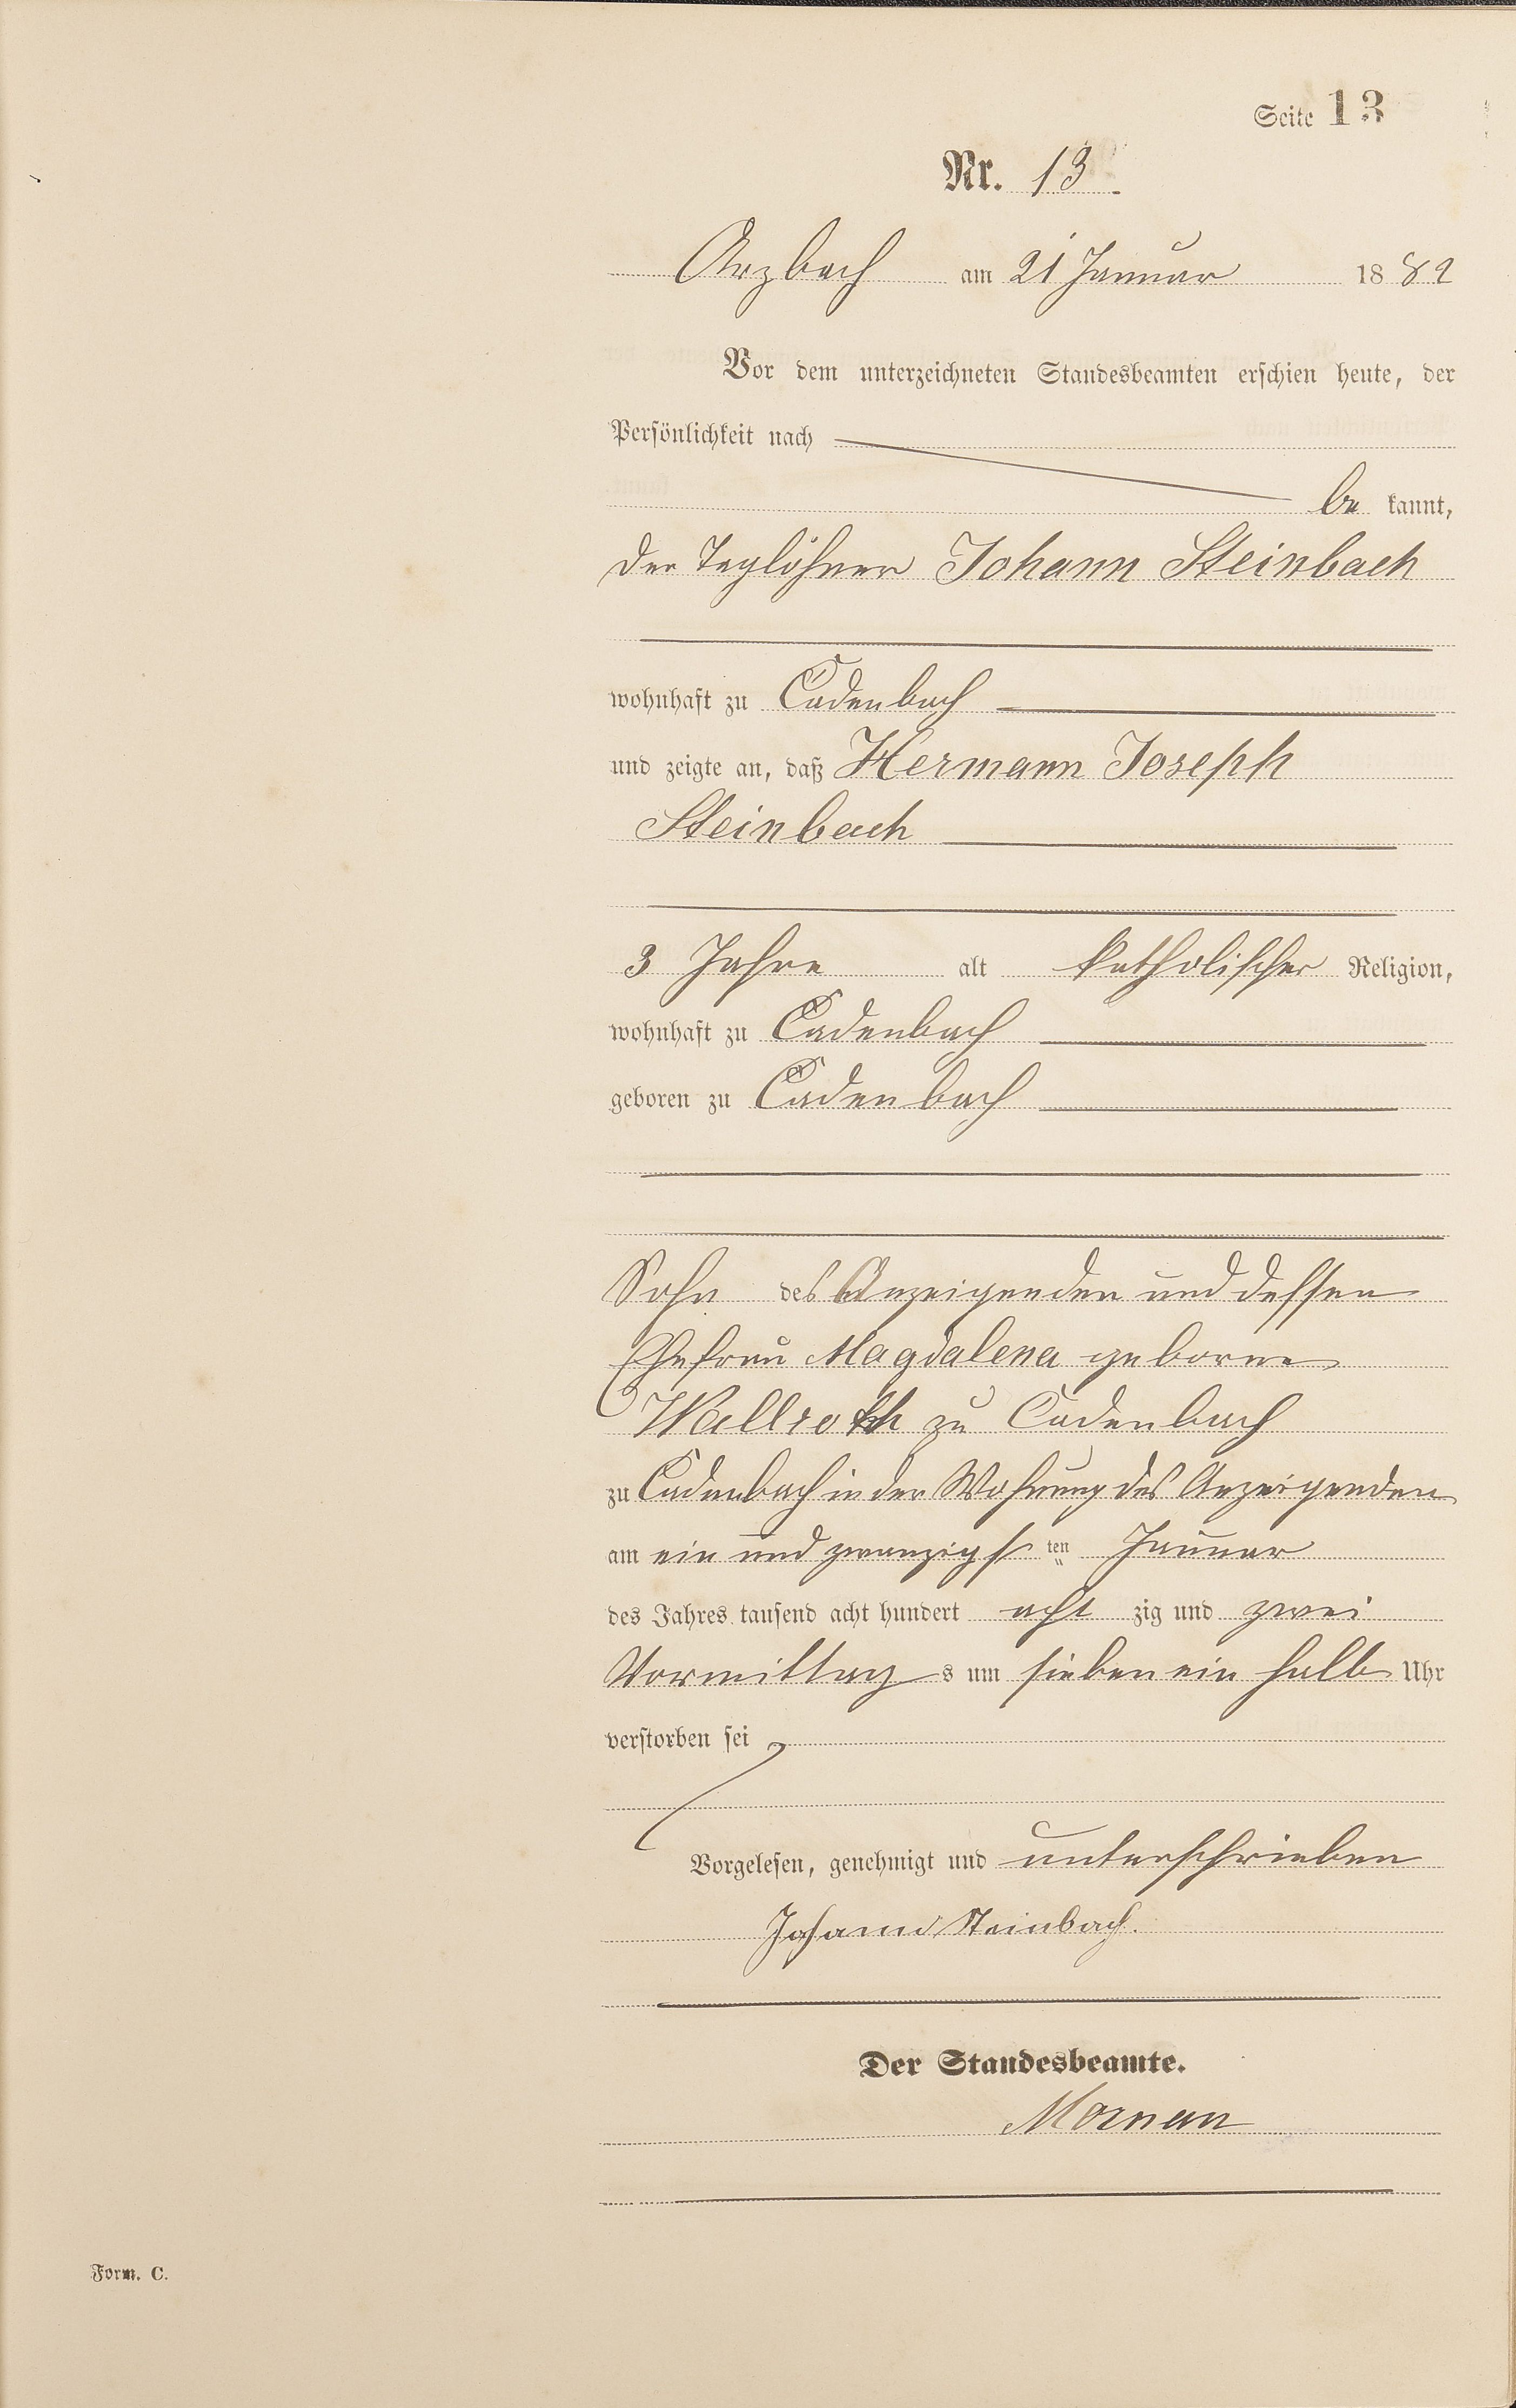 Seite 13
Nr. 13
Arzbach am 21 Januar 1882
Vor dem unterzeichneten Standesbeamten erschien heute, der
Persönlichkeit nach
be kannt,
der Taglöhner Johann Steinbach
wohnhaft zu Cadenbach
und zeigte an, daß Hermann Joseph
Steinbach
3 Jahre alt katholischer Religion,
wohnhaft zu Cadenbach
geboren zu Cadenbach
Sohn des Anzeigenden und dessen
Ehefrau Magdalena geborne
Wallroth zu Cadenbach
zu Cadenbach in der Wohnung des Anzeigenden
am ein und zwanzigsten Januar
des Jahres tausend acht hundert acht zig und zwei
Vormittags um sieben ein halb Uhr
verstorben sei
Vorgelesen, genehmigt und unterschrieben
Johann Steinbach.
Der Standesbeamte.
Form. C.